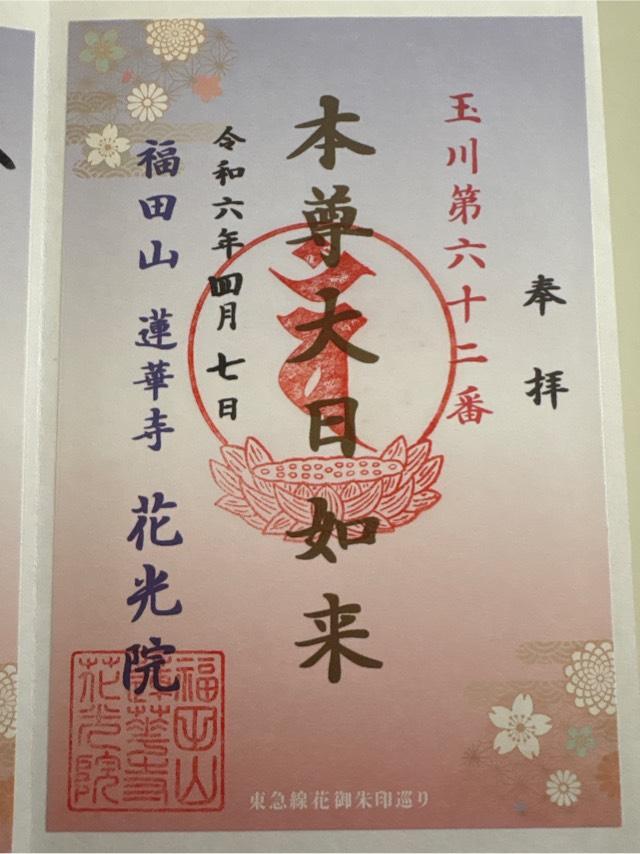 奉拝
玉川第六十二番
本尊大日如来
令和六年四月七日
福田山 蓮華寺 花光院
福田山
蓮華寺
花光院
東急線花御朱印巡り